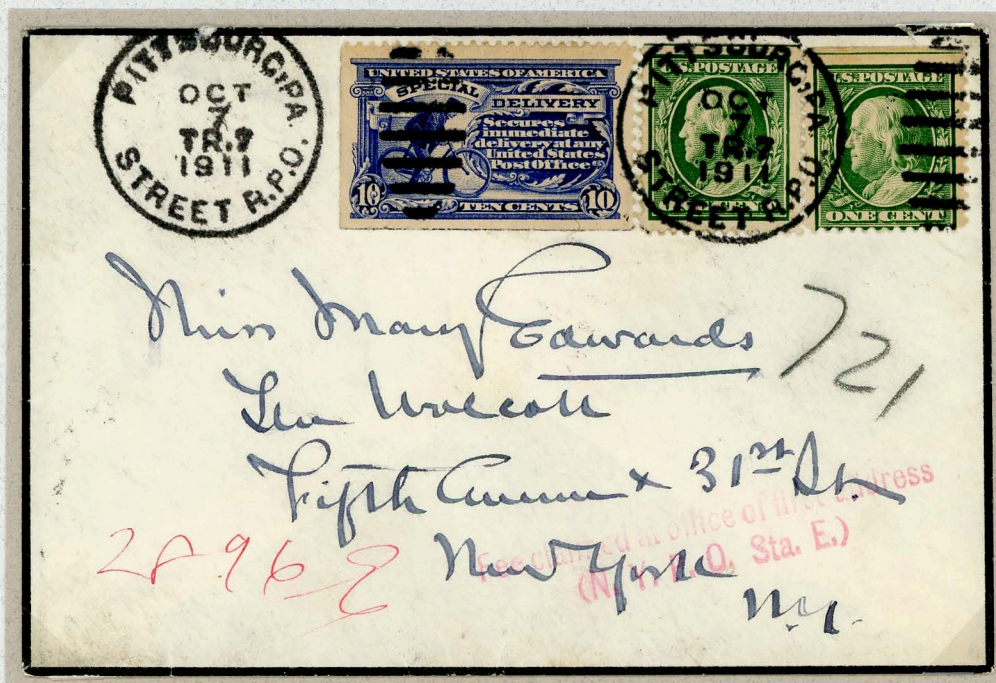 PITTSBURG, PA.
OCT
7
TR.7
1911
STREET R.P.O.
UNITED STATES OF AMERICA
SPECIAL DELIVERY
Secures
immediate
delivery at any
United States
Post Office
10 TEN CENTS 10
U.S. POSTAGE
CENT
PITTSBURG, PA
OCT
7
TR.7
1911
STREET R.P.O.
U.S. POSTAGE
ONE CENT
Miss Mary Edwards
721
The Wolcott
Fifth Avenue & 31st St.
Fee claimed at office of first address
(N. Y. P. O. Sta. E.)
2896 E
New York
N.Y.